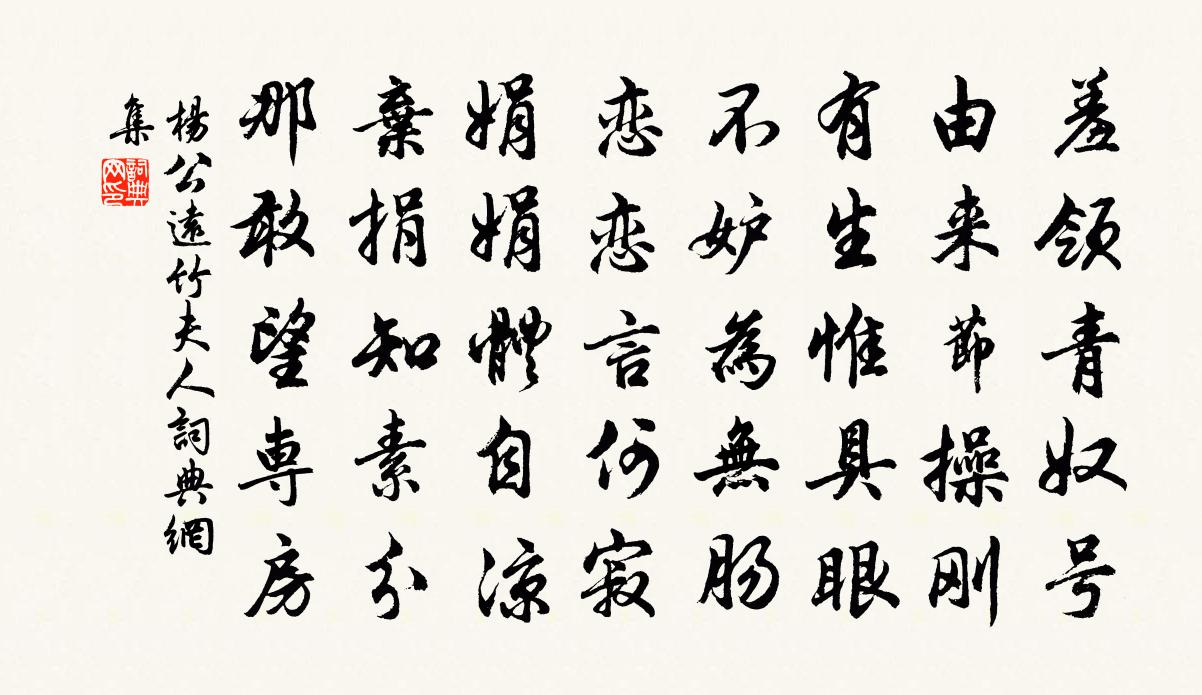 羞领青奴号
由来節操刚
有生惟具眼
不妒為無肠
恋恋言何寂
娟娟體自凉
棄捐知素分
那敢望専房
楊公遠竹夫人詞典網
集
詞典網印